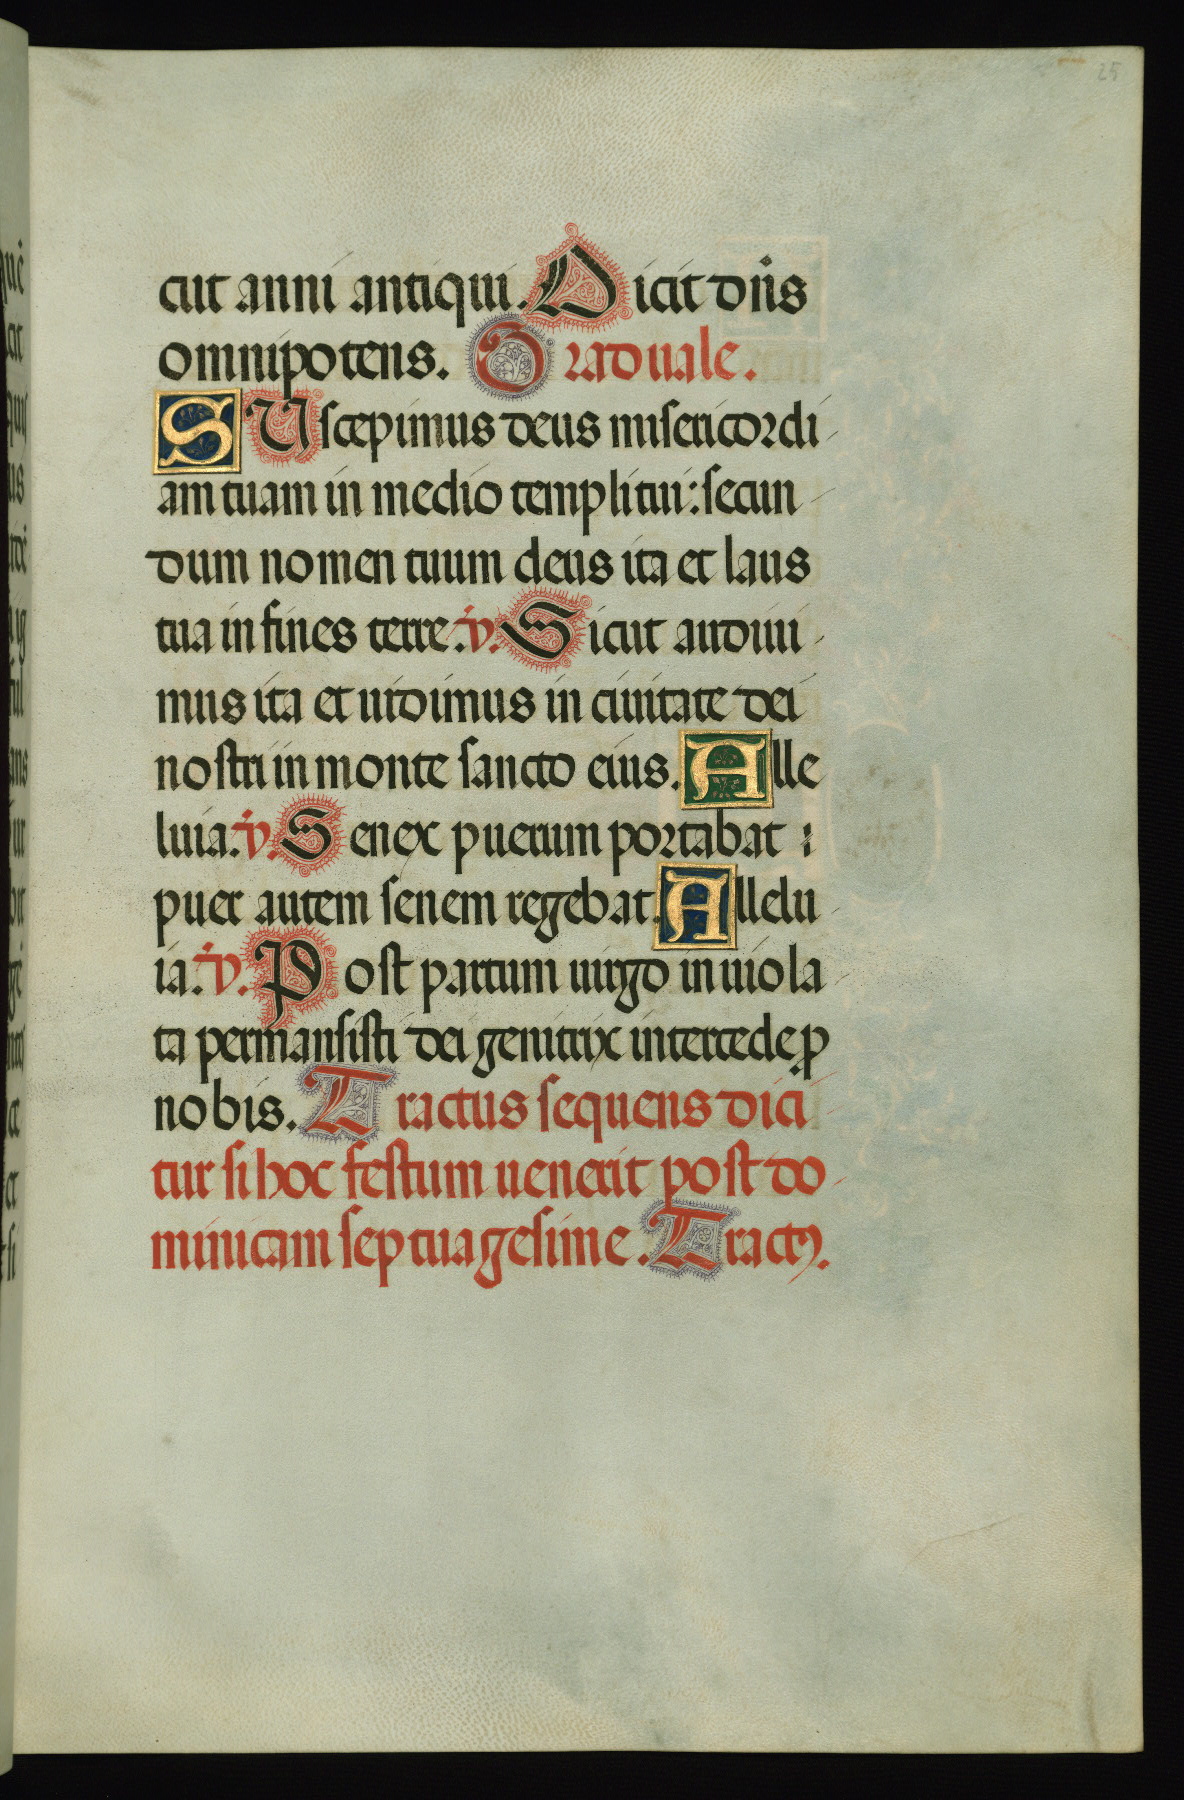 25
cut anni antiqui. Dicit dn̄s
omnipotens. Graduale.
SUscepimus deus misericordi
am tuam in medio templi tui: secun
dum nomen tuum deus ita et laus
tua in fines terre. v̇. Sicut audiui
mus ita et uidimus in ciuitate dei
nostri in monte sancto eius. Alle
luia. v̇. Senex puerum portabat:
puer autem senem regebat. Allelu
ia. v̇. Post partum uirgo inuiola
ta permansisti dei genitrix intercede ꝓ
nobis. Tractus sequens dici
tur si hoc festum uenerit post do
minicam septuagesime. Tractꝯ.